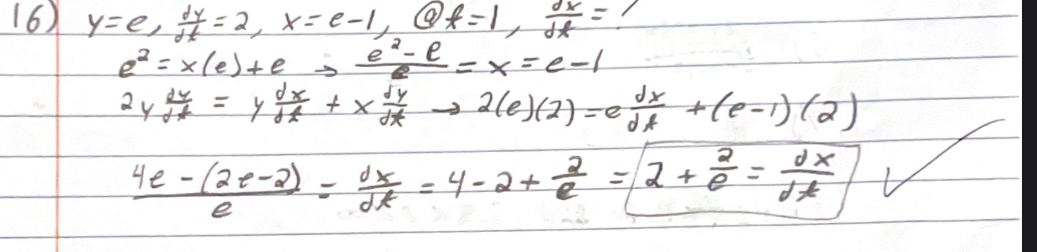 16) y=e, dy/dt=2, x=e-1, @t=1, dx/dt=?
e²=x(e)+e → (e²-e)/e = x = e-1
2y dy/dt = y dx/dt + x dy/dt → 2(e)(2)=e dx/dt +(e-1)(2)
(4e-(2e-2))/e = dx/dt = 4-2+2/e = 2+2/e = dx/dt ✓